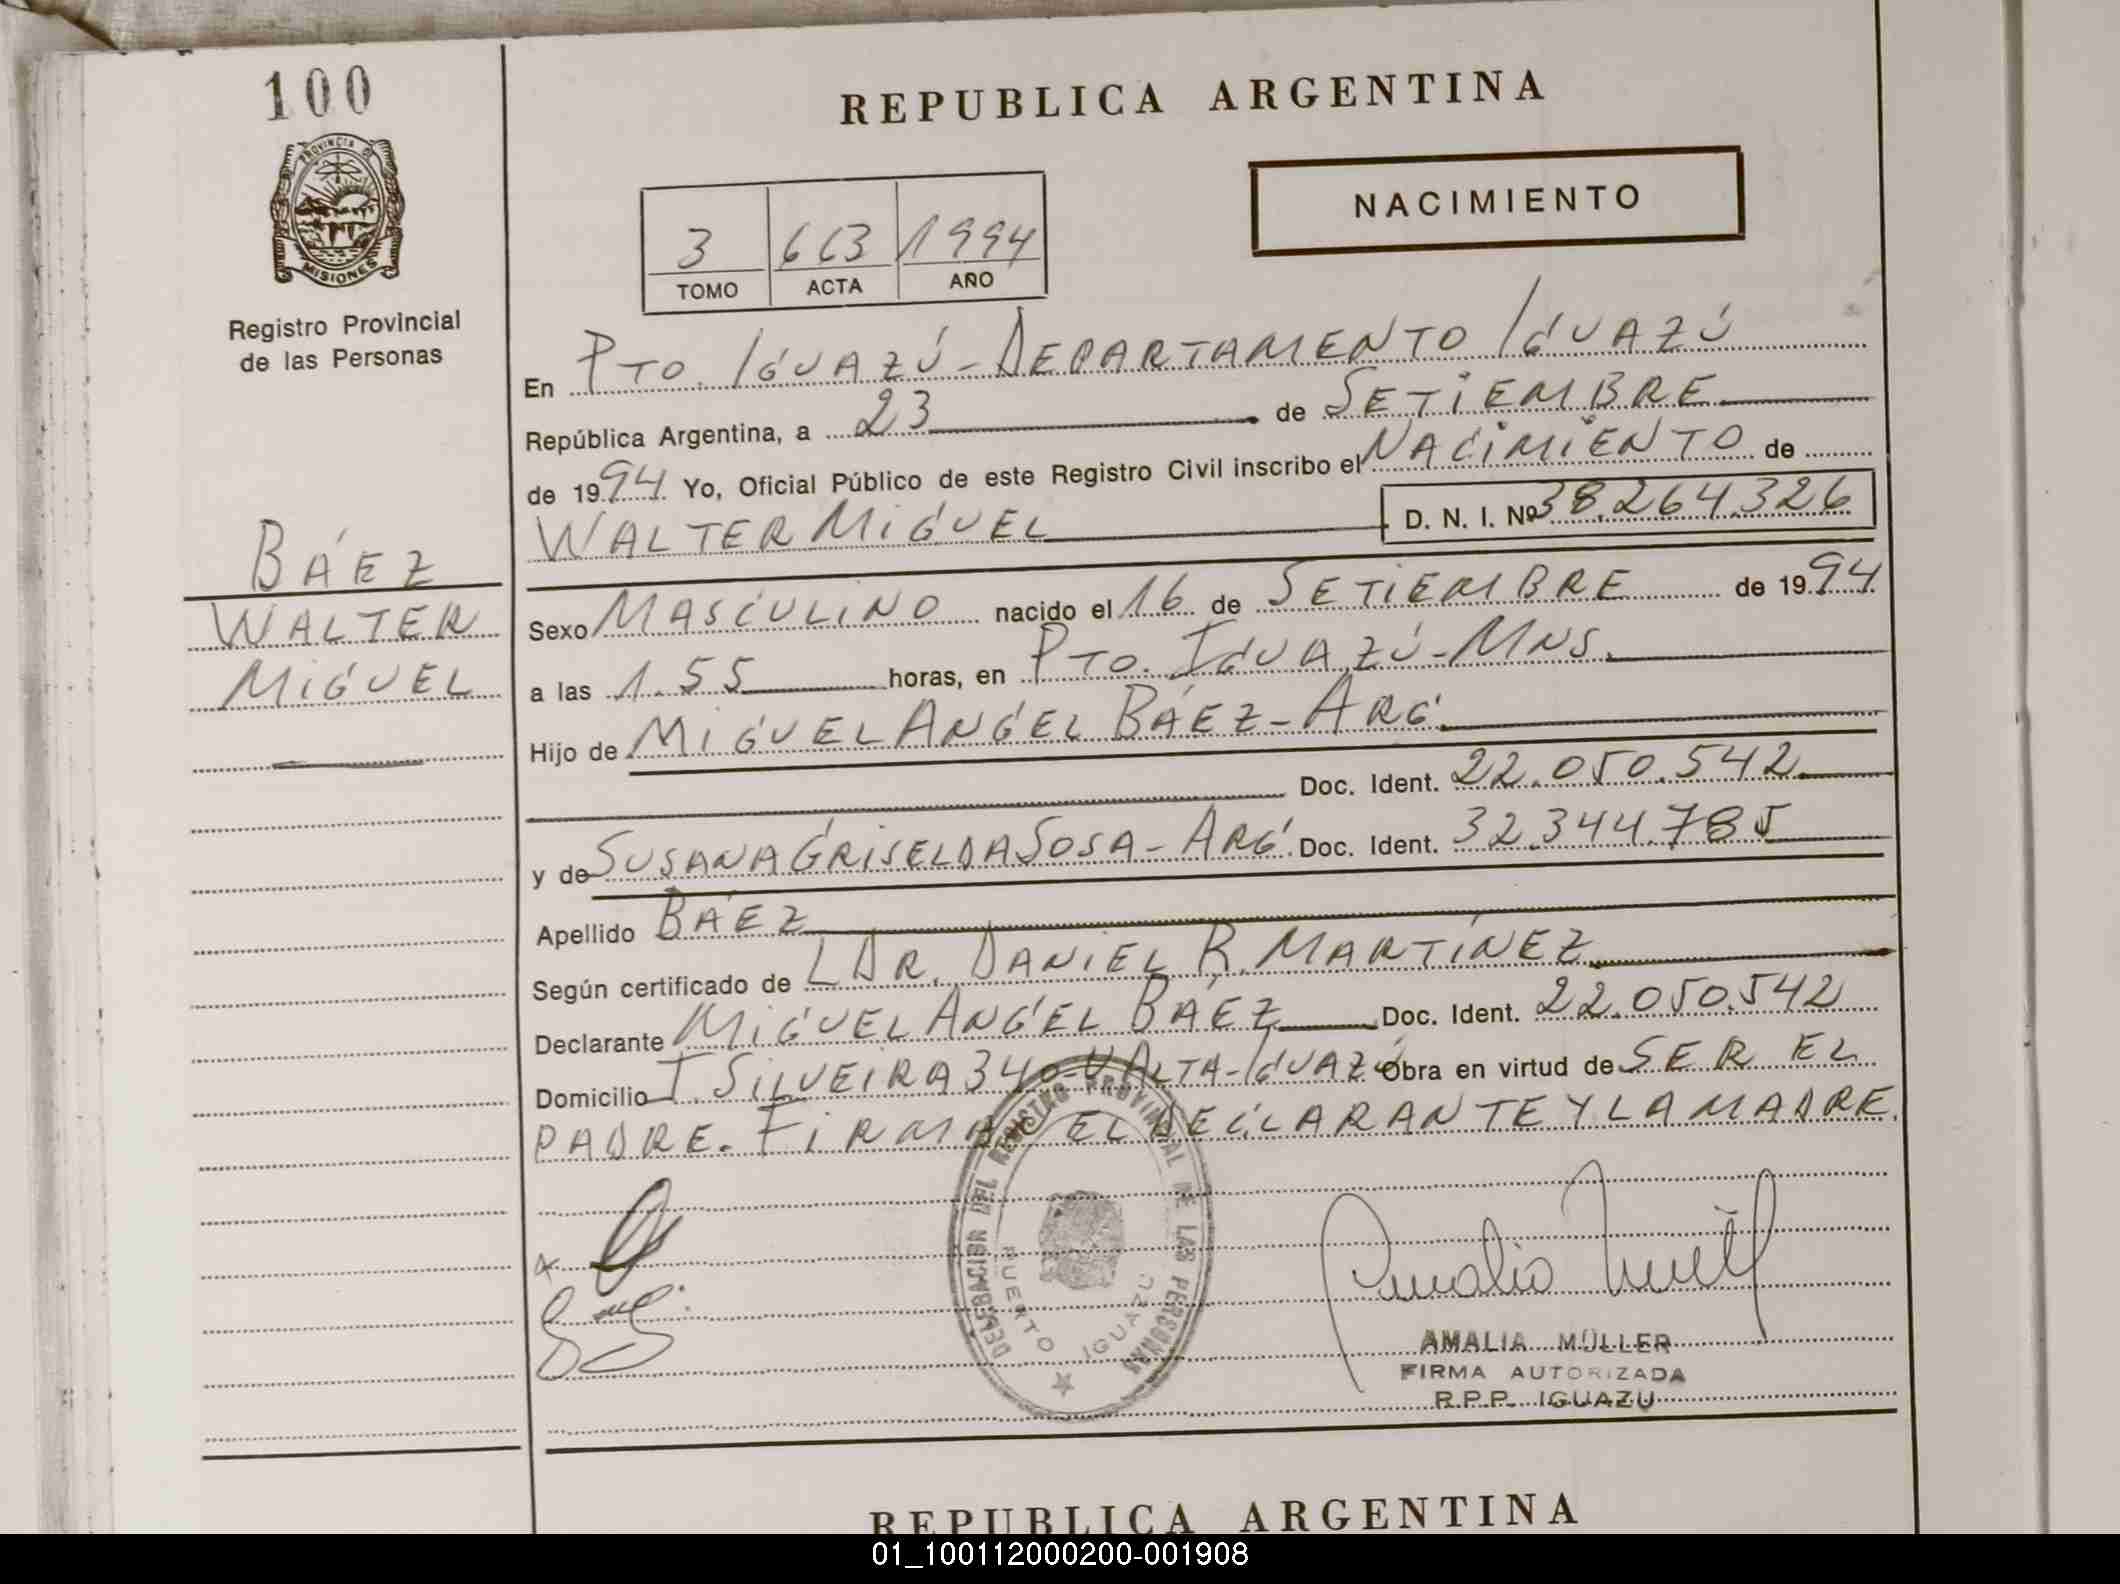 100
PROVINCIA DE
MISIONES
Registro Provincial
de las Personas
BÁEZ
WALTER
MIGUEL
REPUBLICA ARGENTINA
NACIMIENTO
3 663 1994
TOMO ACTA AÑO
En PTO. IGUAZÚ - DEPARTAMENTO IGUAZÚ
República Argentina, a 23 de SETIEMBRE
de 1994 Yo, Oficial Público de este Registro Civil inscribo el NACIMIENTO de
WALTER MIGUEL D. N. I. Nº 38.264.326
Sexo MASCULINO nacido el 16 de SETIEMBRE de 1994
a las 1.55 horas, en PTO. IGUAZÚ - MNS.
Hijo de MIGUEL ANGEL BÁEZ - ARG.
Doc. Ident. 22.050.542
y de SUSANA GRISELDA SOSA - ARG. Doc. Ident. 32.344.785
Apellido BÁEZ
Según certificado de L DR. DANIEL R. MARTÍNEZ
Declarante MIGUEL ANGEL BÁEZ Doc. Ident. 22.050.542
Domicilio T. SILVEIRA 340 - V ALTA - IGUAZÚ Obra en virtud de SER EL
PADRE. FIRMAN EL DECLARANTE Y LA MADRE.
DELEGACION DEL REGISTRO PROVINCIAL DE LAS PERSONAS
PUERTO IGUAZU
Amalia Müll
AMALIA MÜLLER
FIRMA AUTORIZADA
R.P.P. IGUAZU
REPUBLICA ARGENTINA
01_100112000200-001908